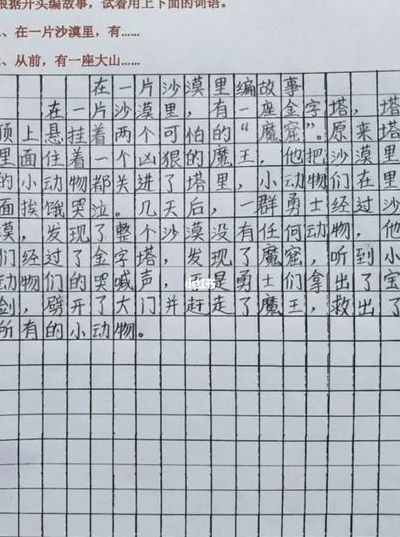 根据开头编故事，试着用上下面的词语。
1、在一片沙漠里，有……
2、从前，有一座大山……
在一片沙漠里编故事
在一片沙漠里，有一座金字塔，塔
顶上悬挂着两个可怕的“魔窟”。原来塔
里面住着一个凶狠的魔王，他把沙漠里
的小动物都关进了塔里，小动物们在里
面挨饿哭泣。几天后，一群勇士经过沙
漠，发现了整个沙漠没有任何动物，他
们经过了金字塔，发现了魔窟，听到小
动物们的哭喊声，于是勇士们拿出了宝
剑，劈开了大门并赶走了魔王，救出了
所有的小动物。
小红书